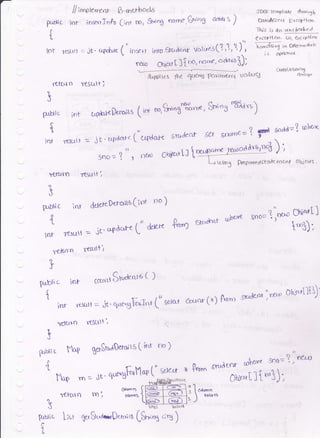 // implement B.methods
public int insertInfo (int no, String name, String addrs)
{
int result = jt.update ("insert into student values(?,?,?)",
new Object[]{no, name, addrs});
supplies the query parameters values
return result;
}
public int updateDetails (int no, String new name, String new addrs)
{
int result = jt.update ("update student set sname=? sadd=? where
sno=?", new Object[]{newname, newaddrs, no});
using PreparedStatement objects.
return result;
}
public int deleteDetails (int no)
{
int result = jt.update ("delete from student where sno=?", new Object[]
{no});
return result;
}
public int countStudents()
{
int result = jt.queryForInt ("select count(*) from student", new Object[]{});
return result;
}
public Map getStudDetails (int no)
{
Map m = jt.queryForMap ("select * from student where sno=?", new
Object[]{no});
return m;
}
public List getStudentDetails (String city)
{
JDBC template through
DataAccess Exception
This is an unchecked
exception so exception
handling is
optional